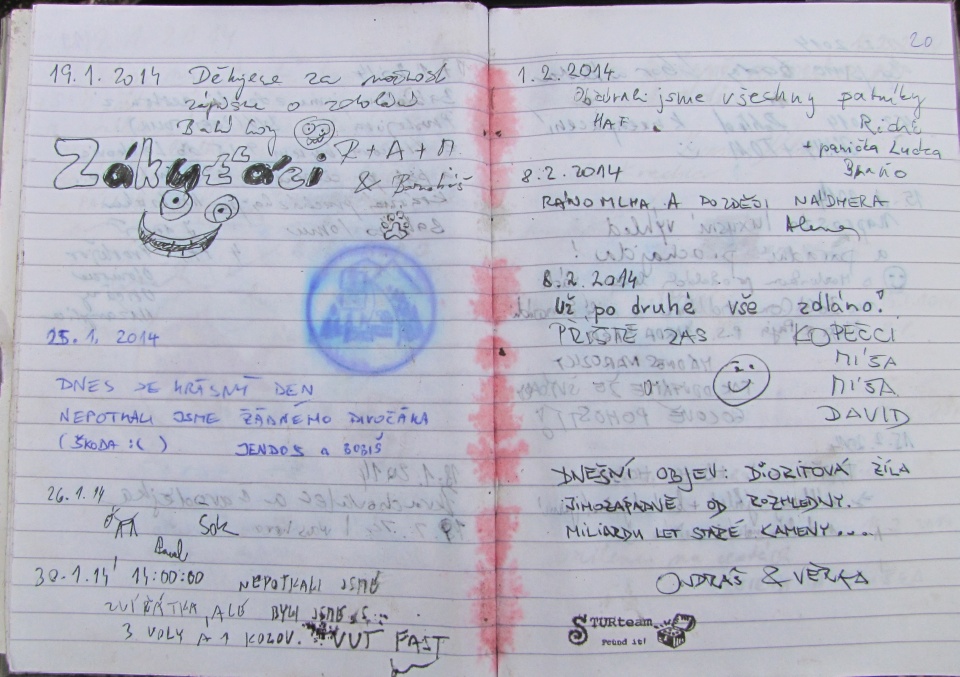 19.1.2014 Děkujeme za možnost
zápisu o zdolání
Babí hory
Zákuťáci R+A+M
& Barnabáš
25.1.2014
DNES JE KRÁSNÝ DEN
NEPOTKALI JSME ŽÁDNÉHO DIVOČÁKA
(ŠKODA :( ) JENDOS a BOBIŠ
26.1.14
Sok
Pavel
30.1.14 14:00:00 NEPOTKALI JSME
ZVÍŘÁTKA, ALE BYLI JSME S
3 VOLY A 1 KOZOU. VUT FAST
20
1.2.2014
jsme všechny patníky
HAF
+ panička Ludza
8.2.2014
RÁNO MLHA A POZDĚJI NÁDHERA
8.2.2014
Už po druhé vše zdláno!
PŘÍŠTĚ ZAS KOPEČCI
MÍŠA
MÍŠA
DAVID
DNEŠNÍ OBJEV: DIORITOVÁ ŽÍLA
JIHOZÁPADNĚ OD ROZHLEDNY.
MILIARDU LET STARÉ KAMENY....
ONDRÁŠ & VĚRKA
STURteam
Found it!